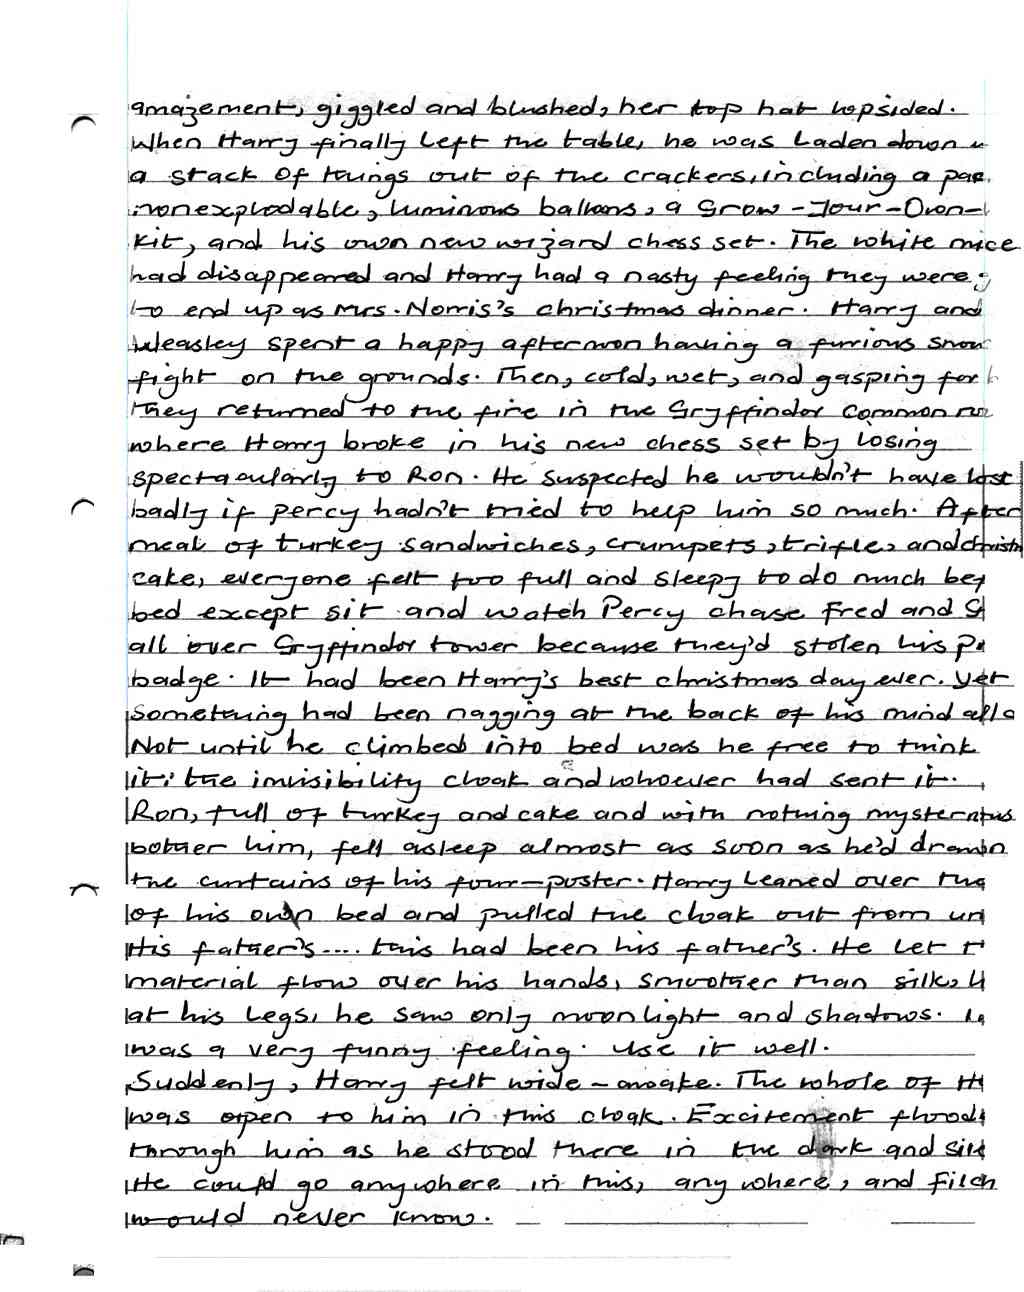 amazement, giggled and blushed, her top hat lopsided.
When Harry finally left the table, he was laden down
a stack of things out of the crackers, including a pac
nonexplodable, luminous balloons, a Grow-Your-Own-
kit, and his own new wizard chess set. The white mice
had disappeared and Harry had a nasty feeling they were
to end up as Mrs. Norris's christmas dinner. Harry and
Weasley spent a happy afternoon having a furious snow
fight on the grounds. Then, cold, wet, and gasping for
they returned to the fire in the Gryffindor common
where Harry broke in his new chess set by losing
spectacularly to Ron. He suspected he wouldn't have lost
badly if percy hadn't tried to help him so much. After
meal of turkey sandwiches, crumpets, trifle, and christm
cake, everyone felt too full and sleepy to do much bef
bed except sit and watch Percy chase Fred and G
all over Gryffindor tower because they'd stolen his p
badge. It had been Harry's best christmas day ever. yet
something had been nagging at the back of his mind all
Not until he climbed into bed was he free to think
it: the invisibility cloak and whoever had sent it.
Ron, full of turkey and cake and with nothing mysterious
bother him, fell asleep almost as soon as he'd drawn
the curtains of his four-poster. Harry leaned over the
of his own bed and pulled the cloak out from un
His father's.... this had been his father's. He let t
material flow over his hands, smoother than silk, l
at his legs, he saw only moonlight and shadows. I
was a very funny feeling. Use it well.
Suddenly, Harry felt wide-awake. The whole of H
was open to him in this cloak. Excitement flood
through him as he stood there in the dark and sile
He could go anywhere in this, anywhere, and filch
would never know.